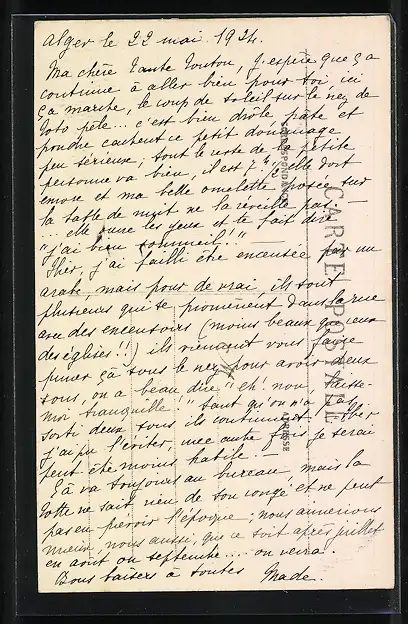 Alger le 22 mai 1924.
Ma chère Tante Touton, j'espère que ça
continue à aller bien pour toi, ici
ça marche, le coup de soleil sur le nez de
Toto pèle... c'est bien drôle, pâte et
poudre cachent ce petit dommage
peu sérieux; tout le reste de la petite
personne va bien, il est 7h 1/2 elle dort
encore et ma belle omelette posée sur
la table de nuit ne la réveille pas. —
... elle ouvre les yeux et te fait dire
"j'ai bien sommeil!" —
Hier, j'ai failli être encensée par un
arabe, mais pour de vrai, ils sont
plusieurs qui se promènent dans la rue
avec des encensoirs (moins beaux que ceux
des églises!!) ils viennent vous faire
fumer ça sous le nez pour avoir deux
sous, on a beau dire "eh! non, laisse-
moi tranquille!" tant qu'on n'a pas
sorti deux sous ils continuent. — Hier
j'ai pu l'éviter, une autre fois je serai
peut être moins habile. —
Ça va toujours au bureau, mais la
Totte ne sait rien de son congé et ne peut
pas en prévoir l'époque; nous aimerions
mieux, nous aussi, que ce soit après juillet
en août ou septembre.... on verra.
Bons baisers à toutes Made.
CARTE POSTALE
CORRESPONDANCE
ADRESSE